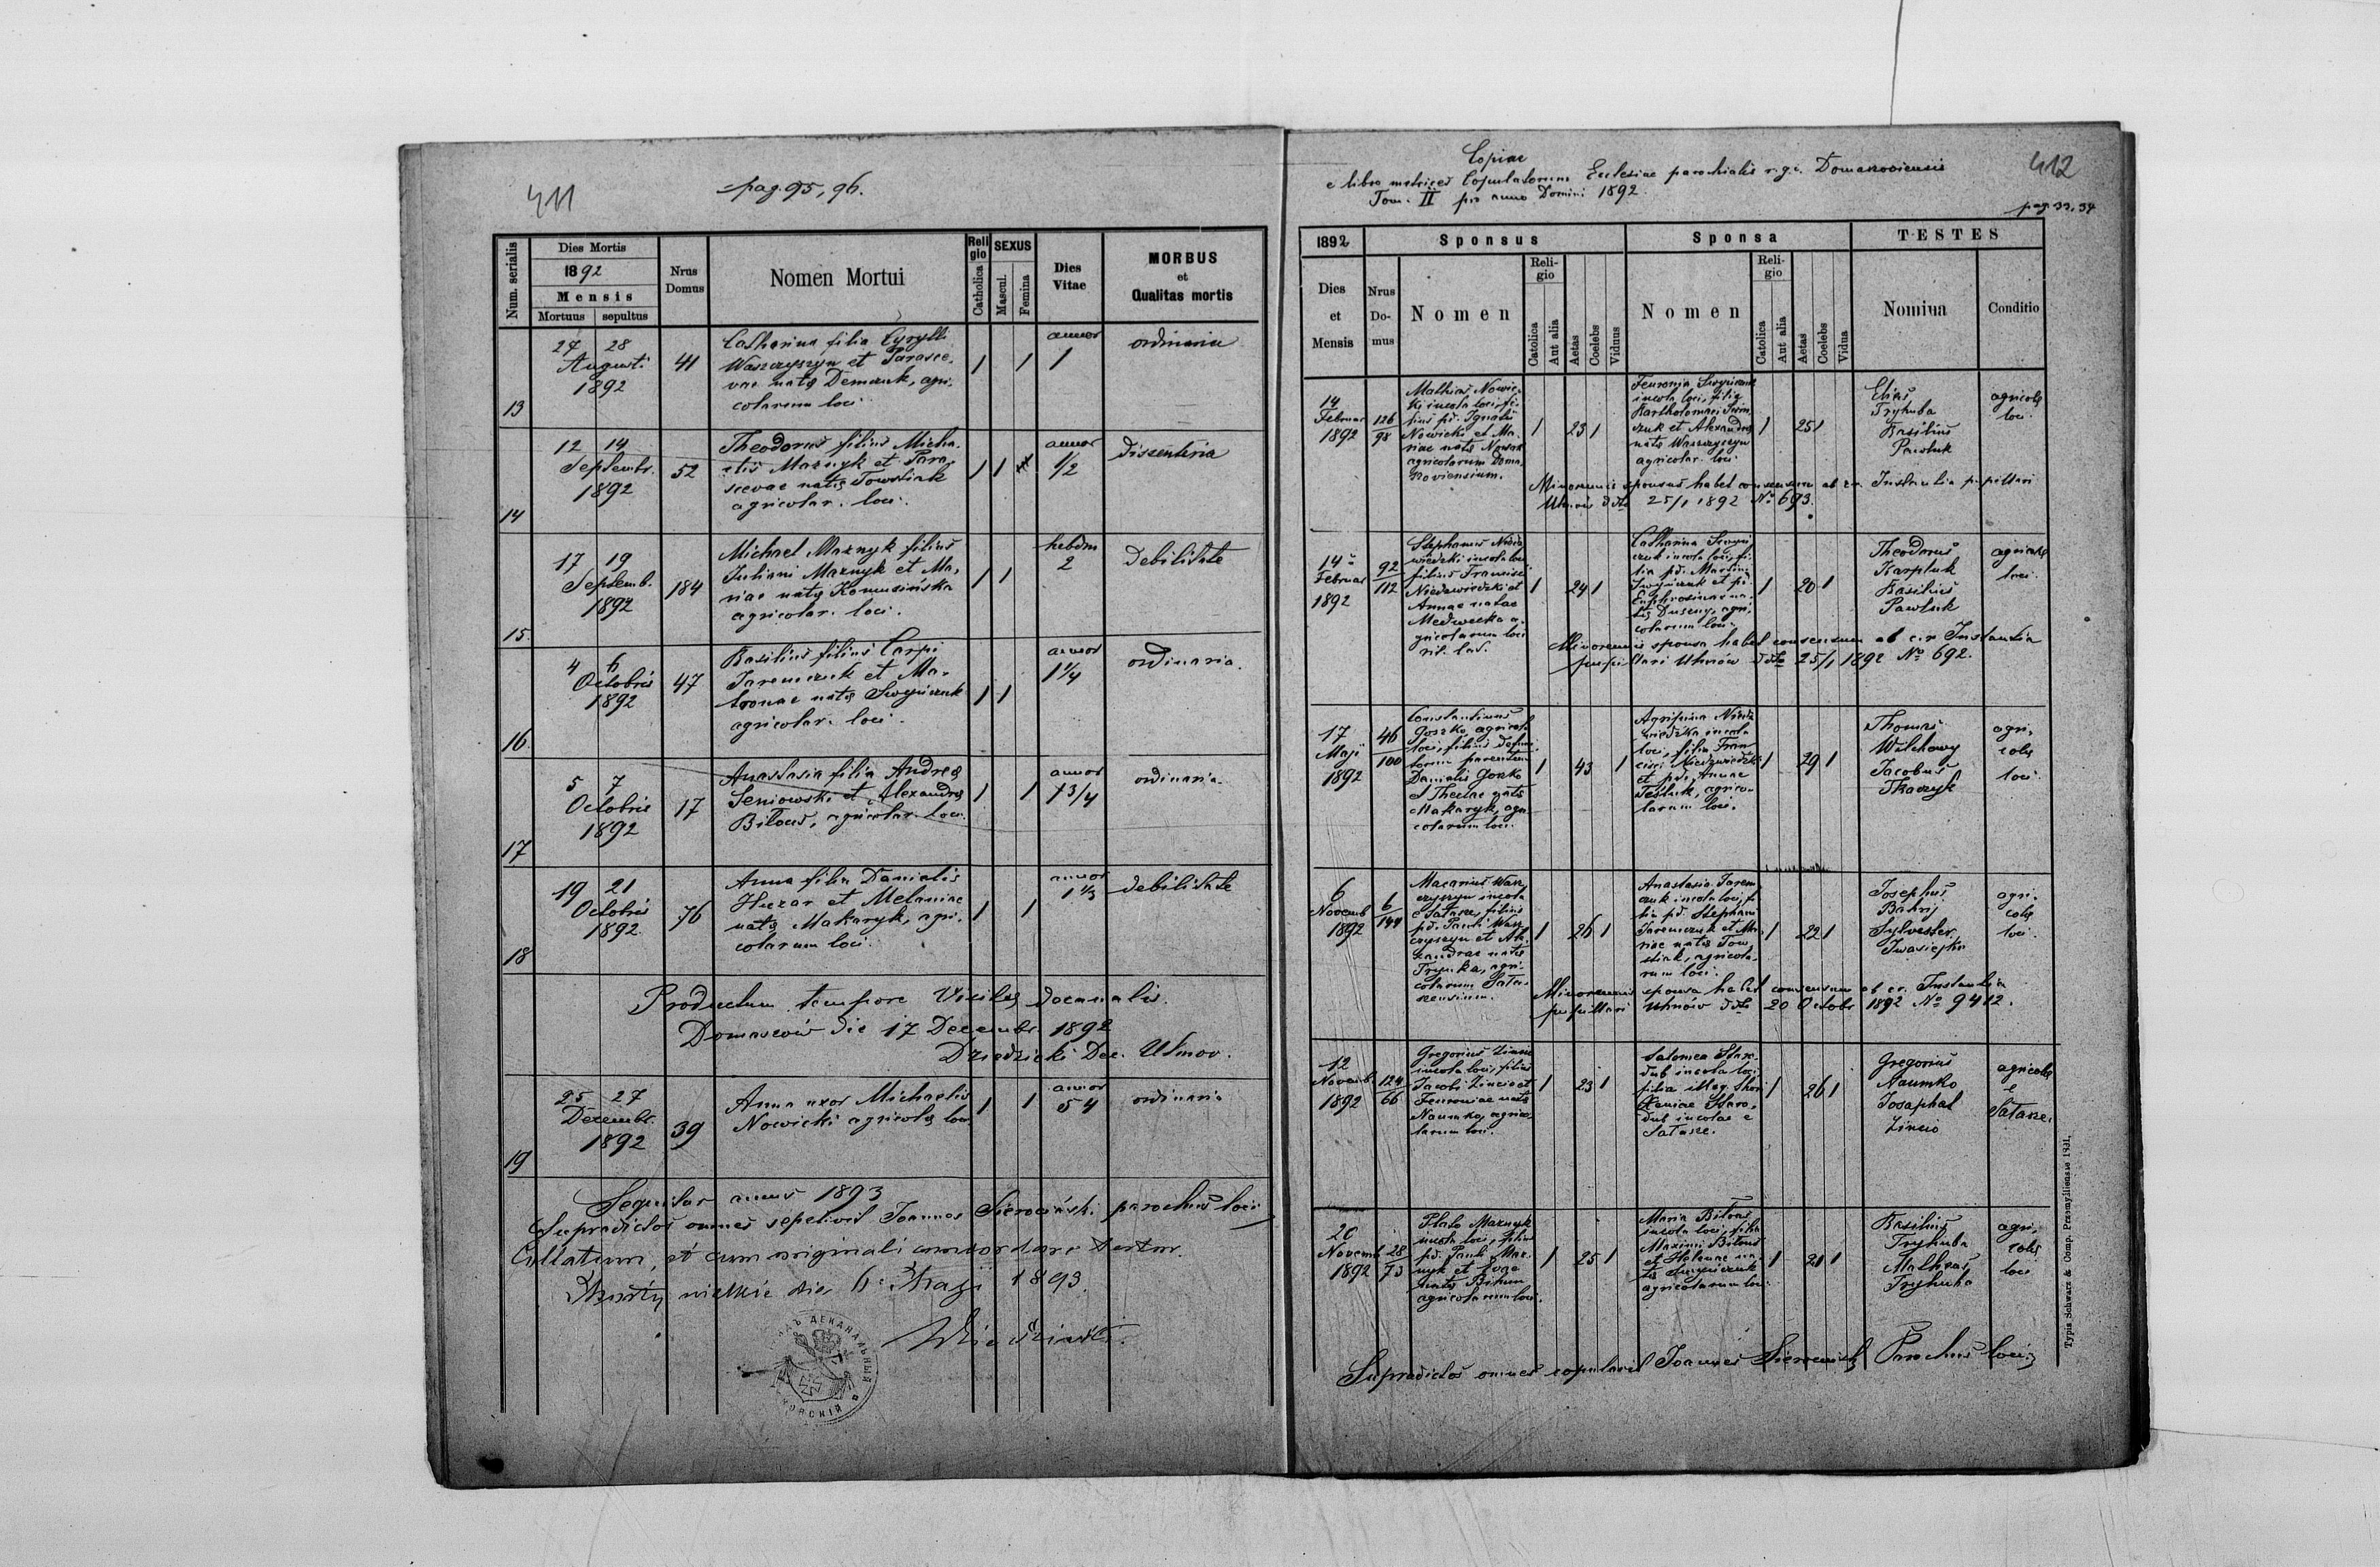 411
pag. 95, 96.
Num. serialis
Dies Mortis
1892
Mensis
Mortuus sepultus
Nrus Domus
Nomen Mortui
Religio
Catholica
SEXUS
Mascul.
Femina
Dies Vitae
MORBUS
et
Qualitas mortis
13
27 28
Augusti
1892
41
Catharina filia Cyrylli
Waszczyszyn et Parasce
vae natę Demczuk, agri
colarum loci
1 1
annor
1
ordinaria
14
12 14
Septembr.
1892
52
Theodorus filius Micha
elis Maznyk et Para
scevae natę Towstiak
agricolar. loci.
1 1
annor
1/2
dissenteria
15.
17 19
Septemb.
1892
184
Michael Maznyk filius
Juliani Maznyk et Ma,
riae natę Komusińska
agricolar. loci.
1 1
hebdm
2
debilitate
16
4 6
Octobris
1892
47
Basilius filius Carpi
Jaremczuk et Ma,
tronae natę Swyńczuk
agricolar. loci.
1 1
annor
1 1/4
ordinaria.
17
5 7
Octobris
1892
17
Anastasia filia Andreę
Seniowski et Alexandrę
Bilous, agricolar. loci.
1 1
annor
1 3/4
ordinaria
18
19 21
Octobris
1892
76
Anna filia Danielis
Huzar et Melaniae
natę Makaryk, agri,
colarum loci.
1 1
annor
1 1/3
debilitate
Productum tempore Visitaę decanalis.
Domaszów die 17 Decembr. 1892
Dziedzicki Dec. Uhnov.
19
25 27
Decembr.
1892
39
Anna uxor Michaelis
Nowicki agricolę loci
1 1
annor
54
ordinaria
Sequitur annus 1893
Supradictos omnes sepelivit Joannes Sierociński parochus loci
Collatum, et cum originali concordare testor.
wielkie die 6. Maji 1893.
Dziedzicki
412
Copiae
e libro metrices Copulatorum Ecclesiae parochialis r.g.c. Domaszoviensis
Tom. II pro anno Domini 1892
pag. 33, 34
1892
Sponsus
Sponsa
TESTES
Dies
et
Mensis
Nrus
Do-
mus
Nomen
Reli-
gio
Catolica
Aut alia
Aetas
Coelebs
Viduus
Nomen
Reli-
gio
Catolica
Aut alia
Aetas
Coelebs
Vidua
Nomina
Conditio
14
Februar
1892
126
98
Mathias Nowic,
ki incola loci, fi,
lius pd. Ignatii
Nowicki et Ma,
riae natę Nowak
agricolarum Doma
szoviensium.
1 23 1
Fewronia Swyńczuk
incola loci, filia
Bartholomaei Swyń,
czuk et Alexandrę
natę Waszczyszyn
agricolar. loci.
1 25 1
Elias
Tryhuba
Basilius
Pawluk
agricolę
loci.
Minorennis sponsus habet consensum ab c.r. Instantia pupillari
Uhnów ddto 25/1 1892 No 693.
14
Februar
1892
92
112
Stephanus Niedź
wiedzki incola loci
filius Francisci
Niedzwiedzki et
Annae natae
Medwecka a,
gricolarum loci
rit. lat.
1 24 1
Catharina Swyń
czuk incola loci, fi,
lia pd. Martini
Swyńczuk et pd.
Euphrosinae na,
tę Duseny, agri,
colarum loci.
1 20 1
Theodorus
Karpluk
Basilius
Pawluk
agricolę
loci.
Minorennis sponsa habet consensum ab c.r. Instantia
pupillari Uhnów ddto 25/1 1892 No 692.
17
Maji
1892
46
100
Constantinus
Goszko, agricola
loci, filius defunc
torum parentum
Danielis Goszko
et Theclae natę
Makaryk, agri
colarum loci.
1 43 1
Agripina Niedź
wiedzka incola
loci, filia Fran
cisci Niedzwiedzki
et pd. Annae
Tesluk, agrico-
larum loci.
1 29 1
Thomas
Walchowy
Jacobus
Tkaczyk
agri,
colę
loci
6
Novemb
1892
6
144
Macarius Wasz,
czyszyn incola
e Sałasze, filius
pd. Pauli Wasz,
czyszyn et Ale
xandrae natę
Trynka, agri,
colarum Sała,
szensium.
1 26 1
Anastasia Jarem,
czuk incola loci, fi
lia pd. Stephani
Jaremczuk et Ma,
riae natę Tow,
stiak, agricola,
rum loci.
1 22 1
Josephus
Bahrij
Sylvester
Iwasiejko
agri,
colę
loci.
Minorennis sponsa habet consensum ab c.r. Instantia
pupillari Uhnów ddto 20 Octobr 1892 No 9412.
12
Novemb.
1892
124
66
Gregorius Zincio
incola loci, filius
Jacobi Zincio et
Fewroniae natę
Naumko, agrico
larum loci.
1 23 1
Salomea Staro
dub incola loci
filia illeg. thori
Xeniae Staro,
dub incolae e
Sałasze.
1 26 1
Gregorius
Naumko
Josaphat
Zincio
agricolę
e
Sałasze.
20
Novemb
1892
28
73
Plato Maznyk
incola loci, filius
pd. Pauli Maz,
nyk et Evae
natę Bihun
agricolarum loci.
1 25 1
Maria Bilous
incola loci, filia
Maximi Bilous
et Helenae na,
tę Swyńczuk
agricolarum loci.
1 21 1
Basilius
Tryhuba
Mathias
Tryhuba
agri,
colę
loci
Supradictos omnes copulavit Joannes Sierociński Parochus loci.
Typis Schwarz & Comp. Przemyśliensis 1891.